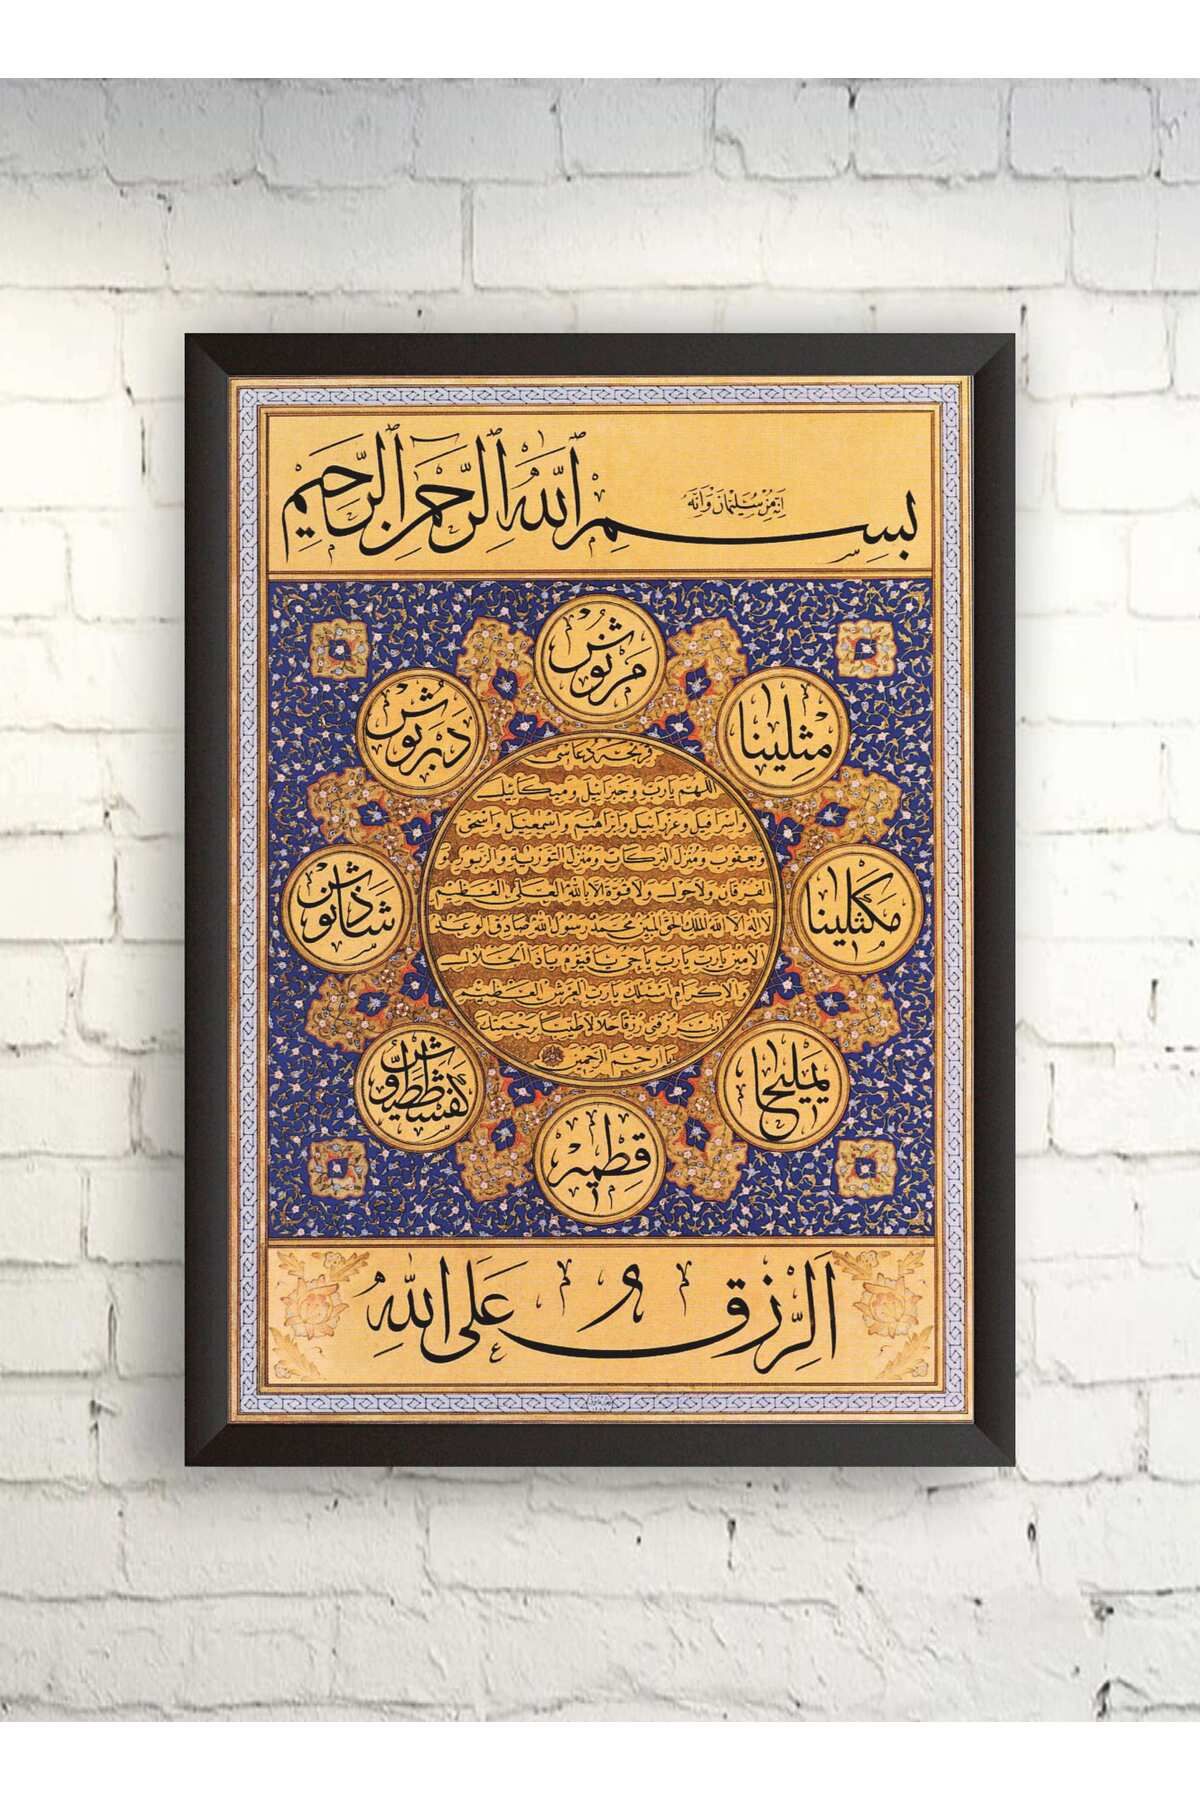 انه من سليمان وانه
بسم الله الرحمن الرحيم
مرنوش
دبرنوش
مثلينا
شاذنوش
مكثلينا
كفشططيوش
يمليخا
قطمير
قرنجه دعاسى
اللهم يا رب وجبرائيل وميكائيل
واسرافيل وعزرائيل وابراهيم واسمعيل واسحق
ويعقوب ومنزل البركات ومنزل التورية والزبور و
الفرقان ولا حول ولا قوة الا بالله العلى العظيم
لا اله الا الله الملك الحق المبين محمد رسول الله صادق الوعد
الامين يا رب يا رب يا حى يا قيوم يا ذا الجلال
والاكرام اسئلك يا رب العرش العظيم
ان ترزقنى رزقا حلالا طيبا برحمتك
يا ارحم الراحمين
الرزق على الله